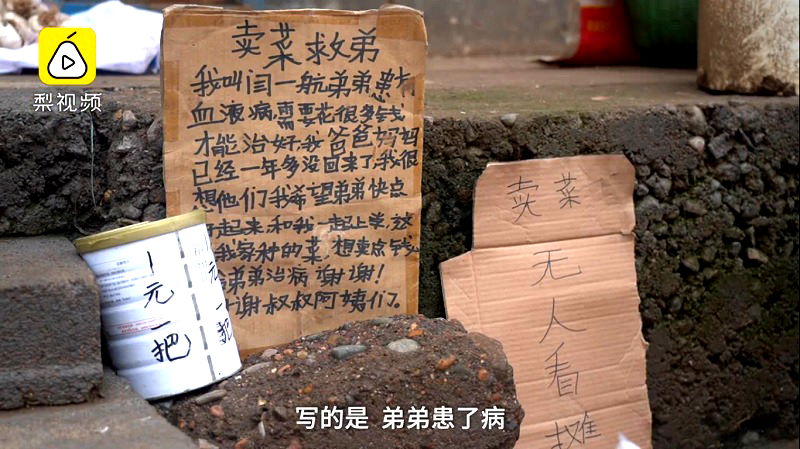 梨视频
卖菜救弟
我叫闫一航弟弟患
血液病,需要花很多钱
才能治好,我爸爸妈妈
已经一年多没回来了,我很
想他们,我希望弟弟快点
好起来和我一起上学,这
我家种的菜,想卖点钱
弟弟治病谢谢!
谢叔叔阿姨们。
1元一把
元一把
卖菜
无人看摊
写的是 弟弟患了病